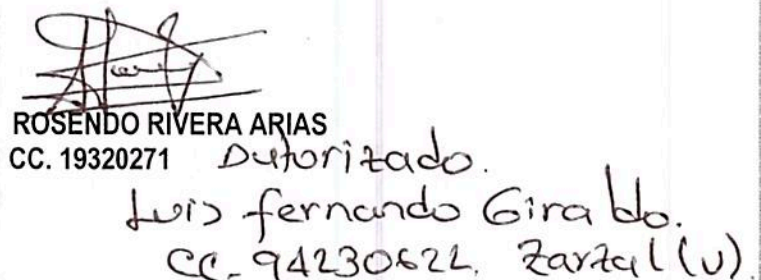 ROSENDO RIVERA ARIAS
CC. 19320271 Autorizado.
Luis fernando Giraldo.
CC. 94230622. Zarzal (V).